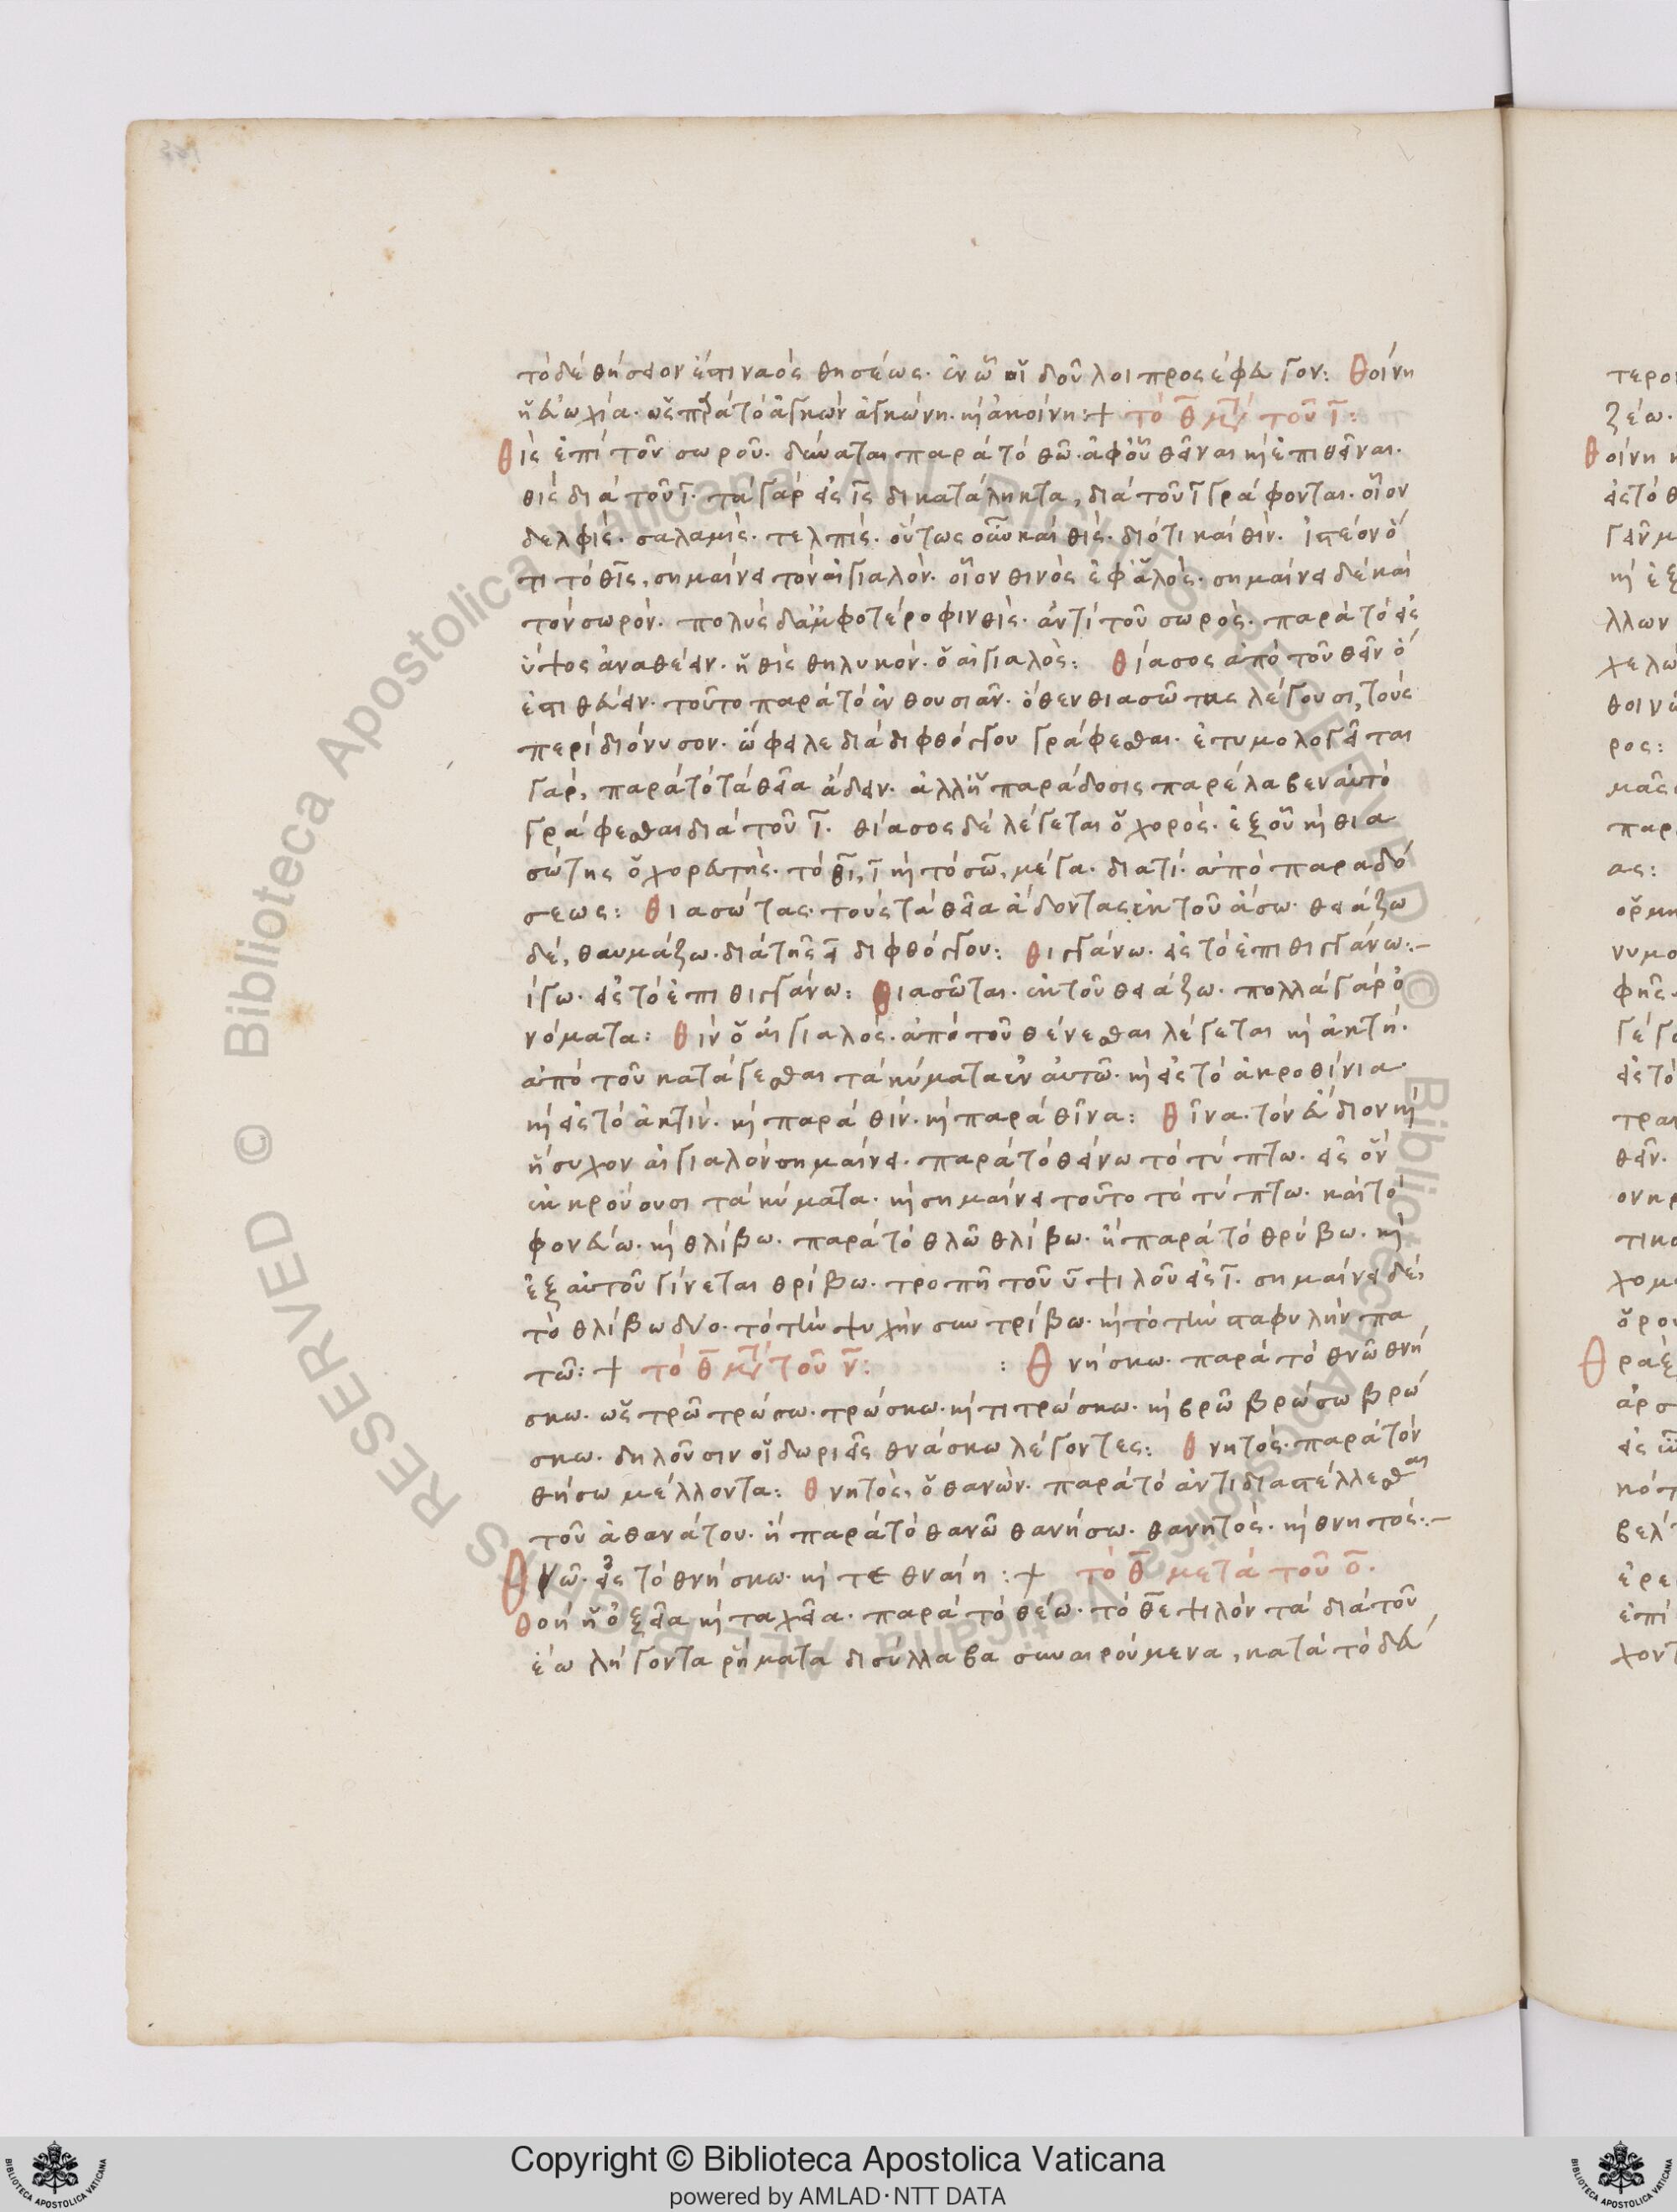 τὸ δὲ θήσειον ἐστι ναὸς θησέως. ἐν ᾧ οἱ δοῦλοι προσέφευγον: Θοίνη
ἡ εὐωχία. ὡς παρὰ τὸ ἀγκὼν ἀγκώνη. κὴ ἀκοίνη:+ τὸ θ̅ μετὰ τοῦ ι̅:
Θὶς ἐπὶ τοῦ σωροῦ. δύναται παρὰ τὸ θῶ. ἀφ' οὗ θεῖναι κὴ ἐπιθεῖναι.
θὶς διὰ τοῦ ι̅. τὰ γὰρ εἰς ι̅ς δικατάληκτα, διὰ τοῦ ι̅ γράφονται. οἷον
δελφίς. σαλαμίς. τελπίς. οὕτως οὖν καὶ θίς. διότι καὶ θίν. ἰστέον ὅ
τι τὸ θὶς, σημαίνει τὸν αἰγιαλόν. οἷον θινὸς ἐφ' ἁλὸς. σημαίνει δὲ καὶ
τὸν σωρόν. πολὺς δ' ἀμφοτέροφιν θὶς. ἀντὶ τοῦ σωρὸς. παρὰ τὸ εἰς
ὕψος ἀναθέειν. ἡ θὶς θηλυκόν. ὁ αἰγιαλὸς: Θίασος ἀπὸ τοῦ θεῖν ὅ
ἐστι θεύειν. τοῦτο παρὰ τὸ ἐνθουσιᾶν. ὅθεν θιασῶτας λέγουσι, τοὺς
περὶ διόνυσον. ὤφειλε διὰ διφθόγγου γράφεσθαι. ἐτυμολογεῖται
γάρ, παρὰ τὸ τὰ θεῖα ᾄδειν. ἀλλ' ἡ παράδοσις παρέλαβεν αὐτὸ
γράφεσθαι διὰ τοῦ ι̅. θίασος δὲ λέγεται ὁ χορὸς. ἐξ οὗ κὴ θια
σώτης ὁ χορευτής. τὸ θι, ι̅ κὴ τὸ σω, μέγα. διατί. ἀπὸ παραδό
σεως: Θιασώτας. τοὺς τὰ θεῖα ᾄδοντας ἐκ τοῦ ἄσω. θειάζω
δέ, θαυμάζω. διὰ τῆς ει διφθόγγου: Θιγγάνω. εἰς τὸ ἐπιθιγγάνω:-
ίγω. εἰς τὸ ἐπιθιγγάνω: Θιασῶται. ἐκ τοῦ θειάζω. πολλὰ γὰρ ὀ
νόματα: Θὶν ὁ αἰγιαλός. ἀπὸ τοῦ θένεσθαι λέγεται κὴ ἀκτή.
ἀπὸ τοῦ κατάγεσθαι τὰ κύματα ἐν αὐτῶ. κὴ εἰς τὸ ἀκροθίνια.
κὴ εἰς τὸ ἀκτίν. κὴ παρὰ θίν. κὴ παρὰ θῖνα: Θῖνα. τὸν εὔδιον κὴ
ἥσυχον αἰγιαλὸν σημαίνει. παρὰ τὸ θείνω τὸ τύπτω. εἰς ὃν
ἐκκρούουσι τὰ κύματα. κὴ σημαίνει τοῦτο τὸ τύπτω. καὶ τὸ
φονεύω. κὴ θλίβω. παρὰ τὸ θλῶ θλίβω. ἢ παρὰ τὸ θρύβω. κὴ
ἐξ αὐτοῦ γίνεται θρίβω. τροπῆ τοῦ υ̅ ψιλοῦ εἰς ι̅. σημαίνει δὲ,
τὸ θλίβω δύο. τὸ τὴν ψυχὴν συντρίβω. κὴ τὸ τὴν σταφυλὴν πα
τῶ:+ τὸ θ̅ μετὰ τοῦ ν̅: : Θνήσκω. παρὰ τὸ θνῶ θνή
σκω. ὡς τρῶ τρώσω. τρώσκω. κὴ τιτρώσκω. κὴ βρῶ βρώσω βρώ
σκω. δηλοῦσιν οἱ δωριεῖς θνάσκω λέγοντες: Θνητός. παρὰ τὸν
θνήσω μέλλοντα: Θνητὸς, ὁ θανὼν. παρὰ τὸ ἀντιδιαστέλλεσθαι
τοῦ ἀθανάτου. ἢ παρὰ τὸ θανῶ θανήσω. θανητός. κὴ θνητός:-
Θνῶ. εἰς τὸ θνήσκω. κὴ τεθναίη:+ τὸ θ̅ μετὰ τοῦ ο̅.
Θοὴ ἡ ὀξεῖα κὴ ταχεῖα. παρὰ τὸ θέω. τὸ θε ψιλόν τὰ διὰ τοῦ
έω λήγοντα ῥήματα δισύλλαβα συναιρούμενα, κατὰ τὸ δεύ
Copyright © Biblioteca Apostolica Vaticana
powered by AMLAD·NTT DATA